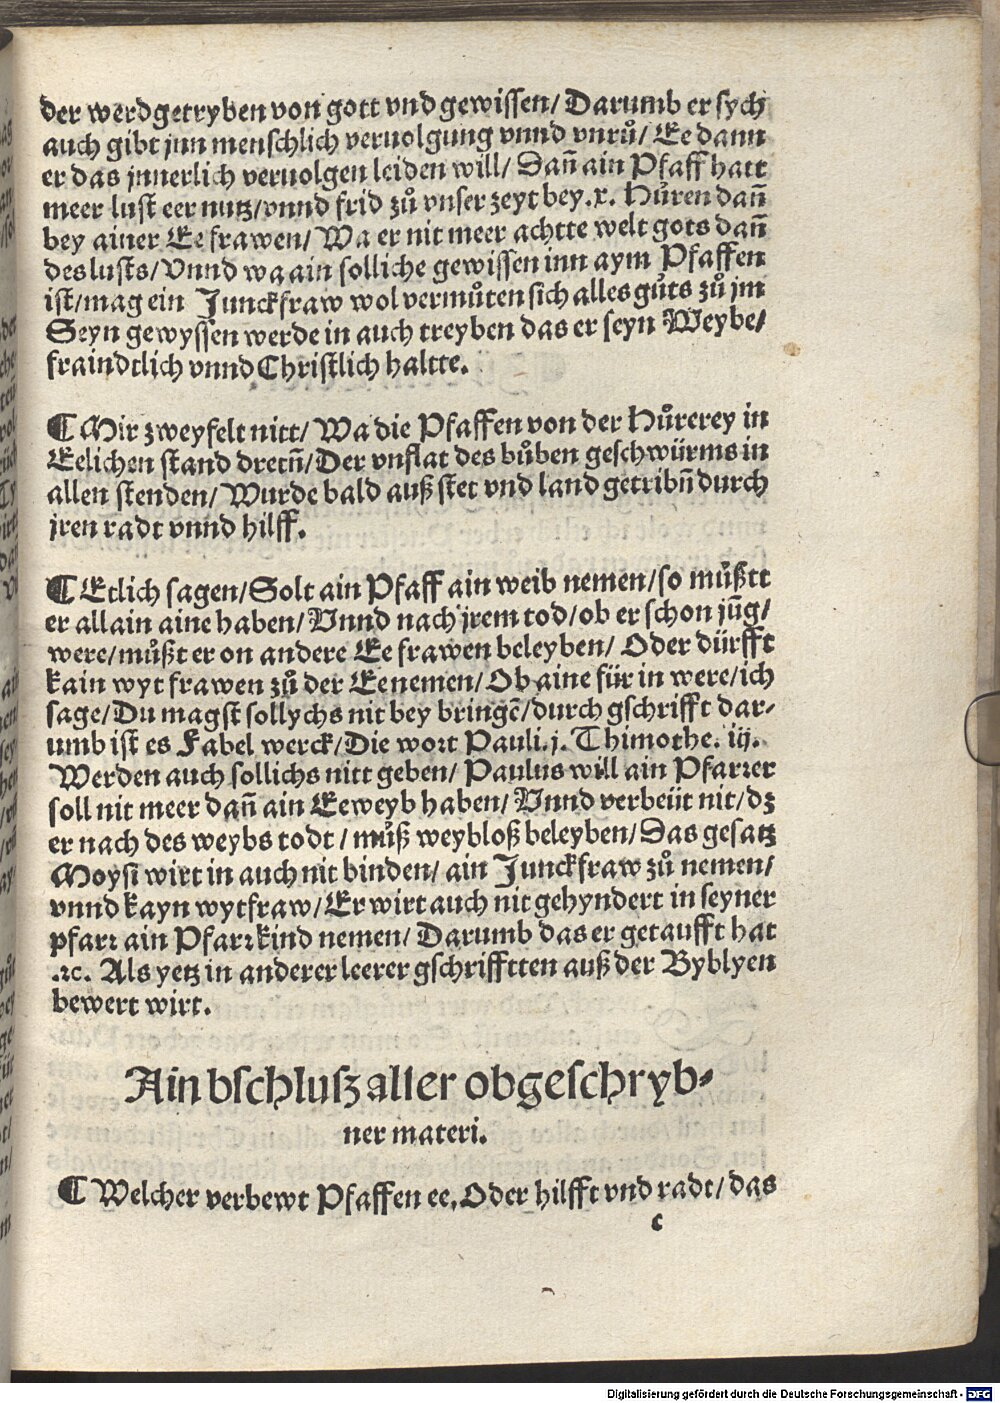 der werd getryben von gott vnd gewissen/ Darumb er sych
auch gibt jnn menschlich veruolgung vnnd vnrů/ Ee dann
er das jnnerlich veruolgen leiden will/ Dañ ain Pfaff hatt
meer lust eer nutz/ vnnd frid zů vnser zeyt bey .x. Hůren dañ
bey ainer Ee frawen/ Wa er nit meer achtte welt gots dañ
des lusts/ Vnnd wa ain solliche gewissen inn aym Pfaffen
ist/ mag ein Junckfraw wol vermůten sich alles gůts zů jm
Seyn gewyssen werde in auch treyben das er seyn Weybe/
fraindtlich vnnd Christlich haltte.
¶ Mir zweyfelt nitt/ Wa die Pfaffen von der Hůrerey in
Eelichen stand dretñ/ Der vnflat des bůben geschwürms in
allen stenden/ Wurde bald auß stet vnd land getribñ durch
jren radt vnnd hilff.
¶ Etlich sagen/ Solt ain Pfaff ain weib nemen/ so můßtt
er allain aine haben/ Vnnd nach jrem tod/ ob er schon jũg/
were/ můßt er on andere Ee frawen beleyben/ Oder dürfft
kain wyt frawen zů der Ee nemen/ Ob aine für in were/ ich
sage/ Du magst sollychs nit bey bringẽ/ durch gschrifft dar-
umb ist es Fabel werck/ Die wort Pauli .j. Thimothe. iij.
Werden auch sollichs nitt geben/ Paulus will ain Pfarrer
soll nit meer dañ ain Eeweyb haben/ Vnnd verbeüt nit/ dz
er nach des weybs todt / můß weybloß beleyben/ Das gesatz
Moysi wirt in auch nit binden/ ain Junckfraw zů nemen/
vnnd kayn wytfraw/ Er wirt auch nit gehyndert in seyner
pfarr ain Pfarrkind nemen/ Darumb das er getaufft hat
.ꝛc. Als yetz in anderer leerer gschrifftten auß der Byblyen
bewert wirt.
Ain bschlusz aller obgeschryb-
ner materi.
¶ Welcher verbewt Pfaffen ee. Oder hilfft vnd radt/ das
c
Digitalisierung gefördert durch die Deutsche Forschungsgemeinschaft - DFG